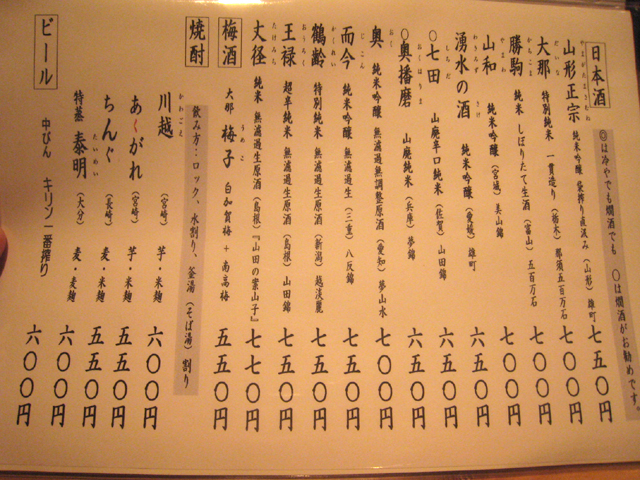 ◎は冷やでも燗酒でも 〇は燗酒がお勧めです。
日本酒
山形正宗 純米吟醸 袋搾り直汲み (山形) 雄町 七五〇円
やまがたまさむね
大那 特別純米 一貫造り (栃木) 那須五百万石 七〇〇円
だいな
勝駒 純米 しぼりたて生酒 (富山) 五百万石 七〇〇円
かちこま
山和 純米吟醸 (宮城) 美山錦 七〇〇円
やまわ
湧水の酒 純米吟醸 (愛媛) 雄町 六五〇円
わうすず さけ
〇七田 山廃辛口純米 (佐賀) 山田錦 六五〇円
しちだ
〇奥播磨 山廃純米 (兵庫) 夢錦 六五〇円
おくはりま
奥 純米吟醸 無濾過無調整原酒 (愛知) 夢山水 七〇〇円
おく
而今 純米吟醸 無濾過生 (三重) 八反錦 七〇〇円
じこん
鶴齢 特別純米 無濾過生原酒 (新潟) 越淡麗 七〇〇円
かくれい
王禄 超辛純米 無濾過生原酒 (島根) 山田錦 七七〇円
おうろく
丈径 純米 無濾過生原酒 (島根) 『山田の案山子』 七七〇円
たけみち
梅酒
大那 梅子 白加賀梅 + 南高梅 五五〇円
うめこ
焼酎
飲み方…ロック、水割り、釜湯(そば湯)割り
川越 (宮崎) 芋・米麹 六〇〇円
かわごえ
あくがれ (宮崎) 芋・米麹 五五〇円
ちんぐ (長崎) 麦・米麹 五五〇円
特蒸 泰明 (大分) 麦・麦麹 六〇〇円
たいめい
ビール
中びん キリン一番搾り 六〇〇円